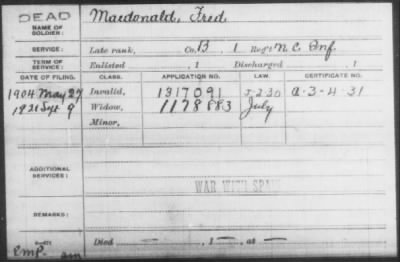 DEAD
NAME OF SOLDIER: Macdonald, Fred
SERVICE: Late rank, Co. B, 1 Reg't N.C. Inf.
TERM OF SERVICE: Enlisted , 1 Discharged , 1
DATE OF FILING. CLASS. APPLICATION NO. LAW. CERTIFICATE NO.
1904 May 27 Invalid, 1317091 5-2-30 a-3-4-31
1921 Sept 9 Widow, 1178883 July
Minor,
ADDITIONAL SERVICES:
WAR WITH SPAIN
REMARKS:
Died — , 1 — , at —